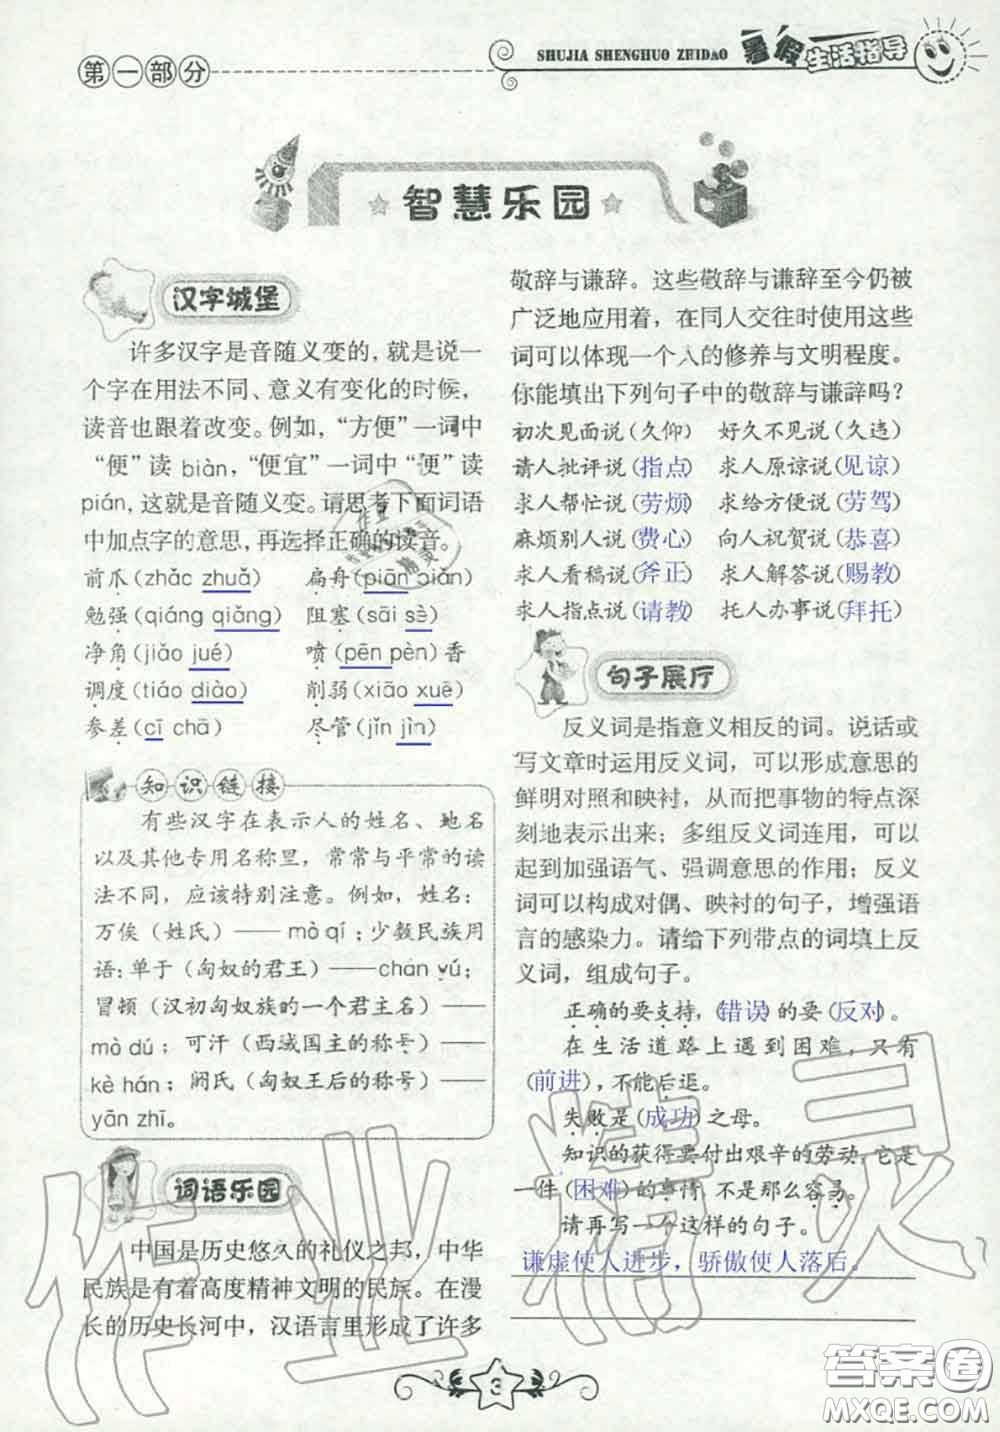 第一部分
SHUJIA SHENGHUO ZHIDAO
暑假生活指导
智慧乐园
汉字城堡
许多汉字是音随义变的,就是说一
个字在用法不同、意义有变化的时候,
读音也跟着改变。例如,“方便”一词中
“便”读 biàn,“便宜”一词中“便”读
pián,这就是音随义变。请思考下面词语
中加点字的意思,再选择正确的读音。
前爪(zhǎo zhuǎ) 扁舟(piān biǎn)
勉强(qiáng qiǎng) 阻塞(sāi sè)
净角(jiǎo jué) 喷(pēn pèn)香
调度(tiáo diào) 削弱(xiāo xuē)
参差(cī chā) 尽管(jǐn jìn)
知识链接
有些汉字在表示人的姓名、地名
以及其他专用名称里,常常与平常的读
法不同,应该特别注意。例如,姓名:
万俟(姓氏)—— mò qí;少数民族用
语:单于(匈奴的君王)——chán yú;
冒顿(汉初匈奴族的一个君主名)——
mò dú;可汗(西域国主的称号)——
kè hán;阏氏(匈奴王后的称号)——
yān zhī。
词语乐园
中国是历史悠久的礼仪之邦,中华
民族是有着高度精神文明的民族。在漫
长的历史长河中,汉语言里形成了许多
敬辞与谦辞。这些敬辞与谦辞至今仍被
广泛地应用着,在同人交往时使用这些
词可以体现一个人的修养与文明程度。
你能填出下列句子中的敬辞与谦辞吗?
初次见面说(久仰) 好久不见说(久违)
请人批评说(指点) 求人原谅说(见谅)
求人帮忙说(劳烦) 求给方便说(劳驾)
麻烦别人说(费心) 向人祝贺说(恭喜)
求人看稿说(斧正) 求人解答说(赐教)
求人指点说(请教) 托人办事说(拜托)
句子展厅
反义词是指意义相反的词。说话或
写文章时运用反义词,可以形成意思的
鲜明对照和映衬,从而把事物的特点深
刻地表示出来;多组反义词连用,可以
起到加强语气、强调意思的作用;反义
词可以构成对偶、映衬的句子,增强语
言的感染力。请给下列带点的词填上反
义词,组成句子。
正确的要支持,(错误)的要(反对)。
在生活道路上遇到困难,只有
(前进),不能后退。
失败是(成功)之母。
知识的获得要付出艰辛的劳动,它是
一件(困难)的事情,不是那么容易。
请再写一个这样的句子。
谦虚使人进步,骄傲使人落后。
3
作业精灵
答案圈
MXQE.COM